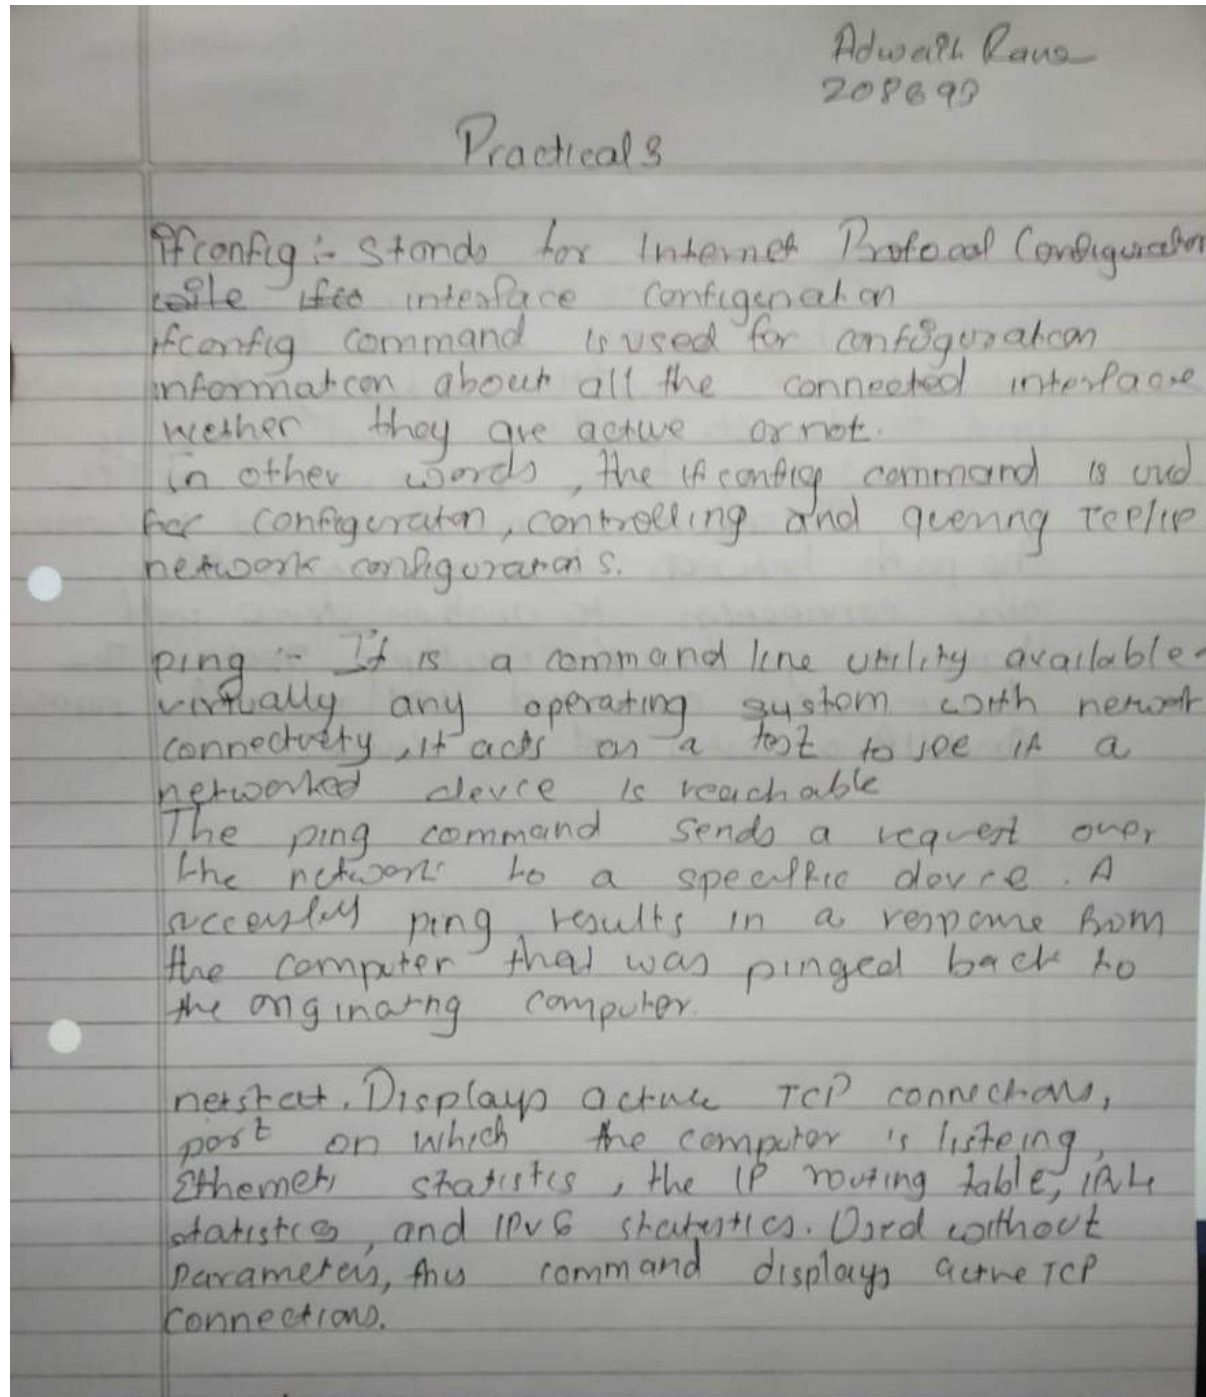 Adwaith Rane
208693
Practical 3
ifconfig :- Stands for Internet Protocoal Configuration
interface configeration
ifconfig command is used for configuration
information about all the connected interface
wether they are active or not.
in other words, the ifconfig command is used
for configeration, controlling and quering TCP/IP
network configurations.
ping :- It is a command line utility available
virtually any operating system with network
connectivety, it acts as a test to see if a
networked device is reachable
The ping command sends a request over
the network to a speciffic device. A
successful ping results in a response from
the computer that was pinged back to
the originating computer.
netstat. Displays active TCP connections,
port on which the computer is listeing,
Ethernet statistics, the IP routing table, IPv4
statistics, and IPv6 statistics. Used without
parameters, this command displays active TCP
connections.